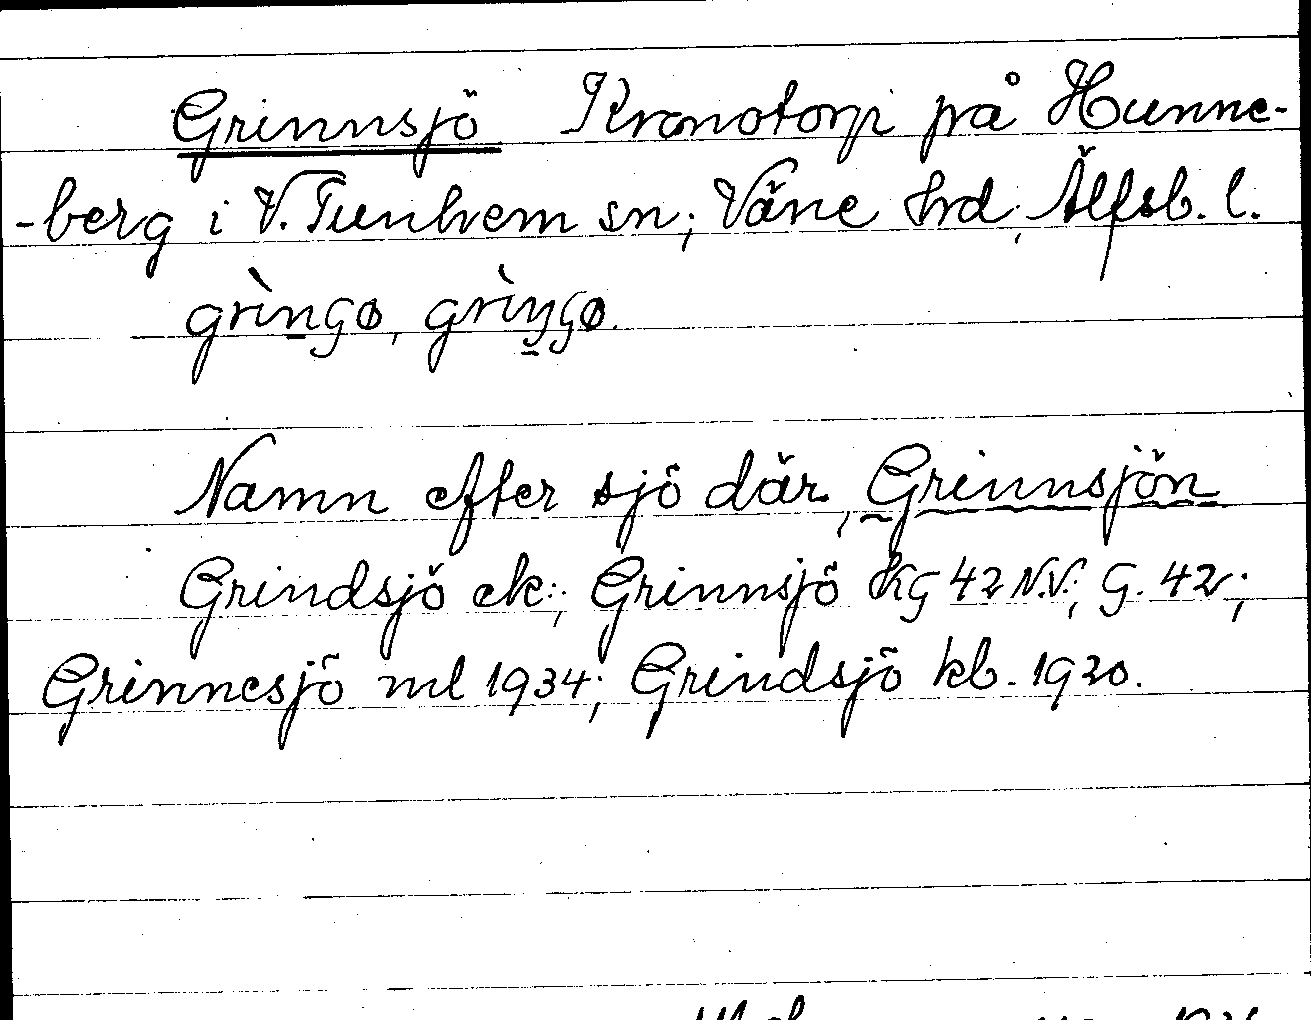 Grinnsjö Kronotorp på Hunne-
-berg i V. Tunhem sn; Väne hrd, Älfsb. l.
Namn efter sjö där, Grinnsjön
Grindsjö ek:; Grinnsjö KG 42 N.V:; G. 42;
Grinnesjö ml 1934; Grindsjö kb. 1920.